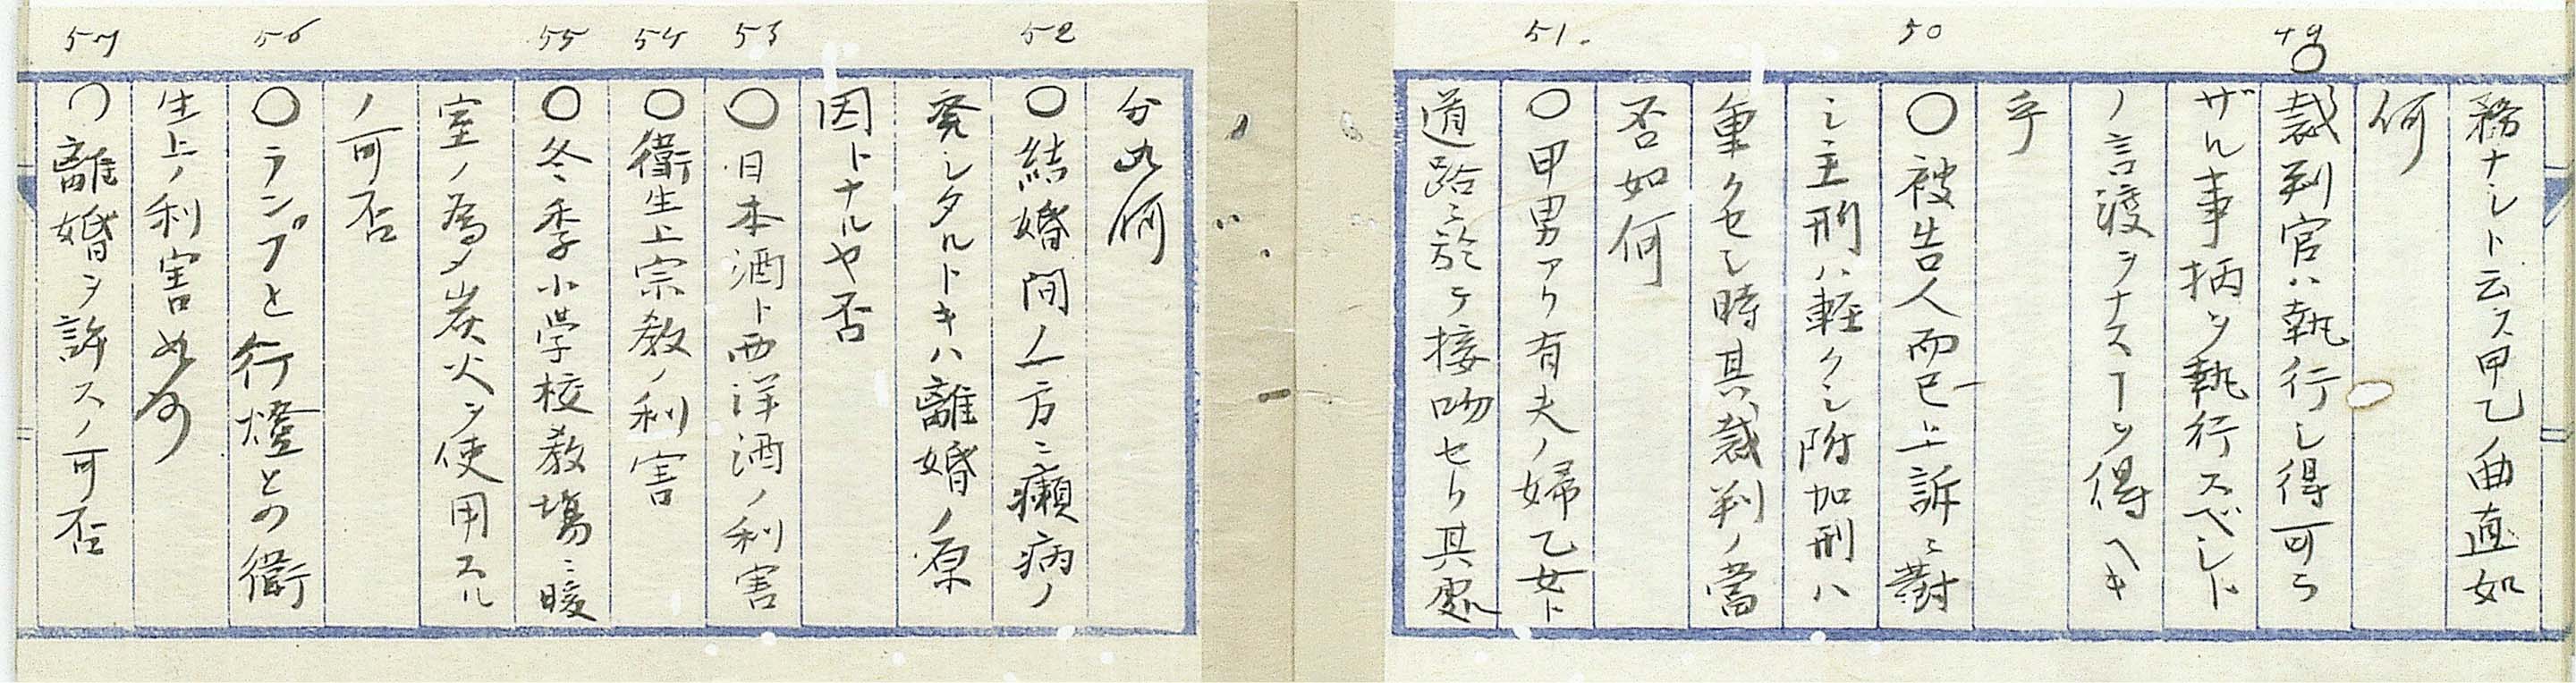 務ナシト云ス甲乙ノ曲直如
何
49
○裁判官ハ執行シ得可ラ
ザル事柄ヲ執行スベシト
ノ言渡ヲナスヿヲ得ヘキ
乎
50
○被告人而已上訴ニ對
シ主刑ハ軽クシ附加刑ハ
重クセシ時其裁判ノ當
否如何
51.
○甲男アリ有夫ノ婦乙女ト
道路ニ於テ接吻セリ其處
分如何
52
○結婚間ノ一方ニ癩病ノ
発シタルトキハ離婚ノ原
因トナルヤ否
53
○日本酒ト西洋酒ノ利害
54
○衛生上宗教ノ利害
55
○冬季小学校教場ニ暖
室ノ為メ炭火ヲ使用スル
ノ可否
56
○ランプと行燈との衛
生上ノ利害如何
57
○離婚ヲ許スノ可否